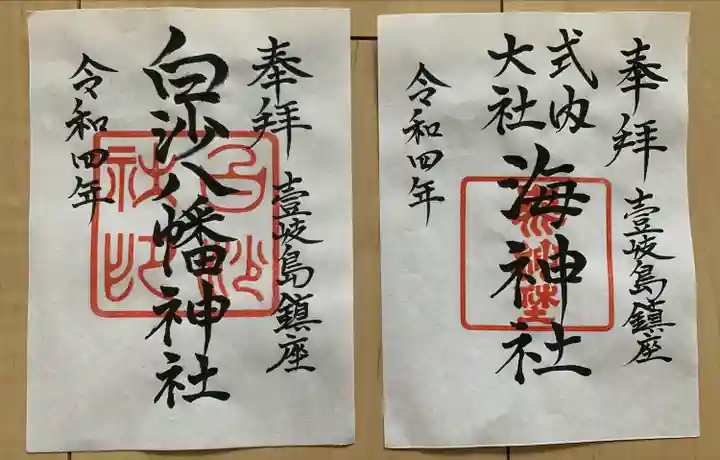 奉拝
壹岐島鎮座
白沙八幡神社
令和四年
奉拝
壹岐島鎮座
式内
大社
海神社
令和四年